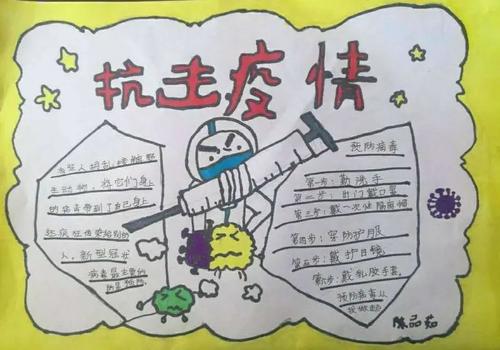 抗击疫情
有些人胡乱接触野
生动物,将它们身上
的病毒带到了自己身上
还疯狂传染给别的
人,新型冠状
病毒最主要的
预防病毒
第一步:勤洗手
第二步:出门戴口罩
第三步:戴一次性隔离帽
第四步:穿防护服
第五步:戴护目镜
第六步:戴乳胶手套
预防病毒从
我做起
陈品茹